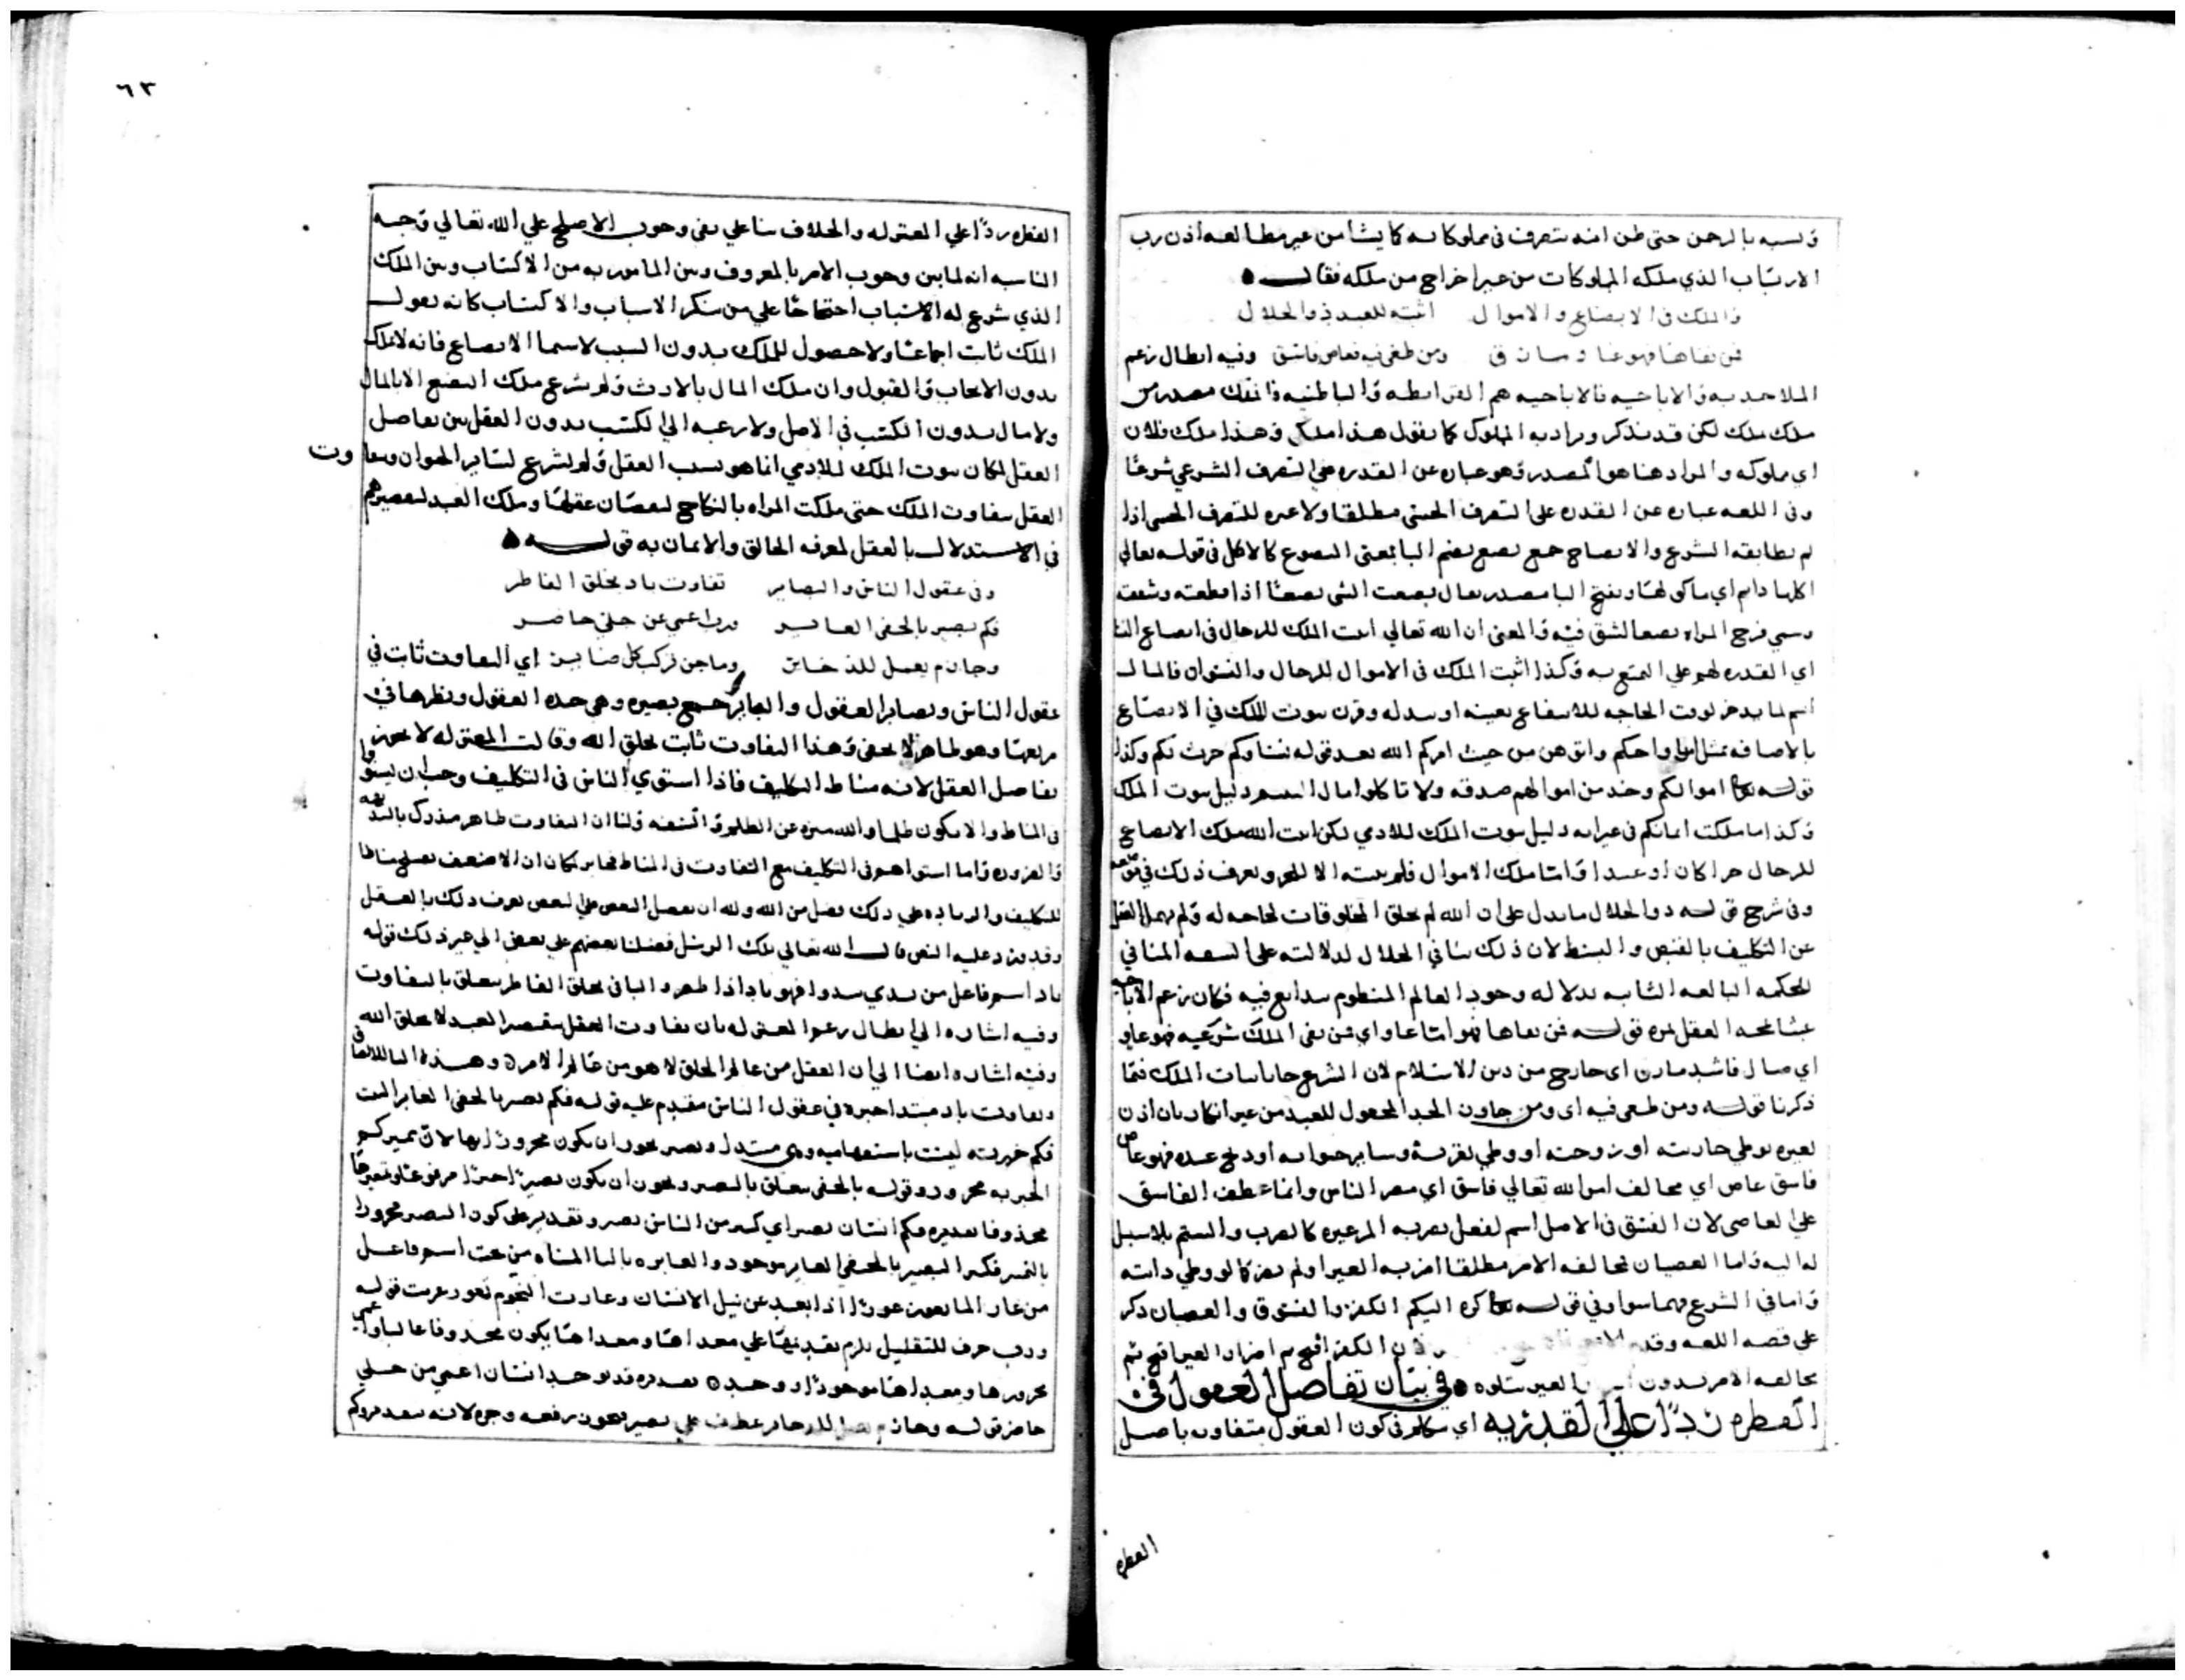 ونسبه بالرحمن حتى ظن انه يتصرف في مملوكاته كما يشا من غير مطالعه اذن رب
الارباب الذي ملكه المملوكات من غير اخراج من ملكه فقال
والملك في الابضاع والاموال اثبته للعبد ذو الجلال
فمن نفاها فهو غاو مارق ومن طغى فيه فعاص فاسق وفيه ابطال زعم
الملاحديه والاباحيه فالاباحيه هم القرامطه والباطنيه والملك مصدر من
ملك ملك لكن قد يذكر ويراد به المملوك كما يقول هذا ملكي وهذا ملك فلان
اي مملوكه والمراد هنا هو المصدر وهو عباره عن القدره على التصرف الشرعي شرعا
وفي اللغه عباره عن القدره على التصرف الحسي مطلقا ولا عبره للتصرف الحسي اذا
لم يطابقه الشرع والابضاع جمع بضع بضم البا بمعنى المبضوع كالاكل في قوله تعالى
اكلها دايم اي ماكولها وبفتح البا مصدر يقال بضعت الشي بضعا اذا قطعته وشققته
وسمي فرج المراه بضعا لشق فيه والمعنى ان الله تعالى اثبت الملك للرجال في ابضاع النسا
اي القدره لهم على التمتع به وكذا اثبت الملك في الاموال للرجال والنسوان فالمال
اسم لما يدخر لوقت الحاجه للانتفاع بعينه او ببدله وقرن ثبوت الملك في الابضاع
بالاضافه بمثل ازواجكم واتوهن من حيث امركم الله بعد قوله نساوكم حرث لكم وكذا
قوله اموالكم وخذ من اموالهم صدقه ولا تاكلوا مال اليتيم دليل ثبوت الملك
وكذا ما ملكت ايمانكم في غير ايه دليل ثبوت الملك للادمي لكن اثبت الله ملك الابضاع
للرجال حرا كان او عبدا واما ملك الاموال فلم يثبته الا للحر ويعرف ذلك في موضعه
وفي شرح قوله ذو الجلال ما يدل على ان الله لم يخلق المخلوقات لحاجه له ولم يهمل العقل
عن التكليف بالقبض والبسط لان ذلك ينافي الجلال لدلالته على السفه المنافي
للحكمه البالغه الثابته بدلاله وجود العالم المنظوم ببدايع فيه فكان زعم الاباحيه
عبثا يمجه العقل ثم قوله فمن نفاها فهو اما غاو اي فمن نفى الملك شرعيه فهو غاو
اي ضال فاسد مارق اي خارج من دين الاسلام لان الشرع جا باثبات الملك فيما
ذكرنا قوله ومن طغى فيه اي ومن جاوز الحد المجعول للعبد من غير انكار بان اذن
لغيره بوطي جاريته او زوجته او وطي بقرته وساير حيواته او ذبح عبده فهو عاص
فاسق عاص اي مخالف امر الله تعالى فاسق اي مضر الناس وانما عطف الفاسق
على العاصي لان الفسق في الاصل اسم لفعل يضر به المر غيره كالضرب والشتم بلا سبيل
له اليه واما العصيان مخالفه الامر مطلقا اضر به الغير او لم يضر كما لو وطي دابته
واما في الشرع فهما سوا وفي قوله كره اليكم الكفر والفسوق والعصيان ذكر
على قصه اللغه وقدم الكفر اقبح ثم اضرار الغير اقبح ثم
مخالفه الامر بدون الغير يتلوه في بيان تفاضل العقول في
الفطره ردا على القدريه اي نتكلم في كون العقول متفاوت باصل
الفطره
٦٣
الفطره ردا على المعتزله والخلاف بنا على نفي وجوب الاصلح على الله تعالى وجه
المناسبه انه لما بين وجوب الامر بالمعروف وبين المامور به من الاكتساب وبين الملك
الذي شرع له الاسباب احتجاجا على من ينكر الاسباب والاكتساب كانه يقول
الملك ثابت اجماعا ولا حصول للملك بدون السبب لا سيما الابضاع فانه لا تملك
بدون الايجاب والقبول وان ملك المال بالارث ولم يشرع ملك البضع الا بالمال
ولا مال بدون الكسب في الاصل ولا رغبه الى الكسب بدون العقل بين تفاضل
العقل لمكان ثبوت الملك للادمي انما هو بسبب العقل ولم يشرع لساير الحيوان وتفاوت
العقل يتفاوت الملك حتى ملكت المراه بالنكاح لنقصان عقلها وملك العبد لتقصيرهم
في الاستدلال بالعقل لمعرفه الخالق والايمان به قوله
وفي عقول الناس والبصاير تفاوت باد بخلق الفاطر
فكم بصير بالخفي الغابر ورب اعمى عن جلي حاضر
وحازم يعمل للذخاير وماجن يركب كل ضاير اي التفاوت ثابت في
عقول الناس وبصاير العقول والبصاير جمع بصيره وهي حده العقول ونظرها في
مرتعها وهو ظاهر لا يخفى وهذا التفاوت ثابت بخلق الله وقالت المعتزله لا يجوز
تفاضل العقل لانه مناط التكليف فاذا استوى الناس في التكليف وجب ان يستووا
في المناط والا يكون ظلما والله منزه عن الظلم والسفه ولنا ان التفاوت ظاهر مدرك بالبديهه
والضروره واما استواهم في التكليف مع التفاوت في المناط فجايز لمكان ان الاضعف يصلح مناطا
للتكليف والزياده على ذلك فضل من الله وله ان يفضل البعض على البعض يعرف ذلك بالعقل
وقد ورد عليه النص قال الله تعالى تلك الرسل فضلنا بعضهم على بعض الى غير ذلك قوله
باد اسم فاعل من بدى يبدوا فهو باد اذا ظهر والبا في بخلق الفاطر يتعلق بالتفاوت
وفيه اشاره الى ابطال زعم المعتزله بان تفاوت العقل بتقصير العبد لا بخلق الله
وفيه اشاره ايضا الى ان العقل من عالم الخلق لا هو من عالم الامر وهذه البا للالصاق
وتفاوت باد مبتدا خبره في عقول الناس مقدم عليه قوله فكم بصير بالخفي الغابر البيت
فكم خبريه ليست باستفهاميه وهي مبتدا وبصير يجوز ان يكون مجرورا بها لان مميز كم
الخبريه مجرور وقوله بالخفي يتعلق بالبصير ويجوز ان يكون بصير خبرا مرفوعا ومميزها
محذوفا تقديره فكم انسان بصير اي كثير من الناس بصير وتقدير على كون البصير مجرورا
بالمميز فكم البصير بالخفي الغابر موجود والغابر بالبا المثناه من تحت اسم فاعل
من غار الما يغور غورا اذا بعد عن نيل الانسان وغارت النجوم تغور غربت قوله
ورب حرف للتقليل يلزم تقديمها على مبتداها ومبتداها يكون محذوفا غالبا واعمى
مجرورها ومبتداها موجود او وجد تقديره قد يوجد انسان اعمى من جلي
حاضر قوله وحازم يعمل للذخاير عطف على بصير يجوز رفعه وجره لانه بعد مروكم